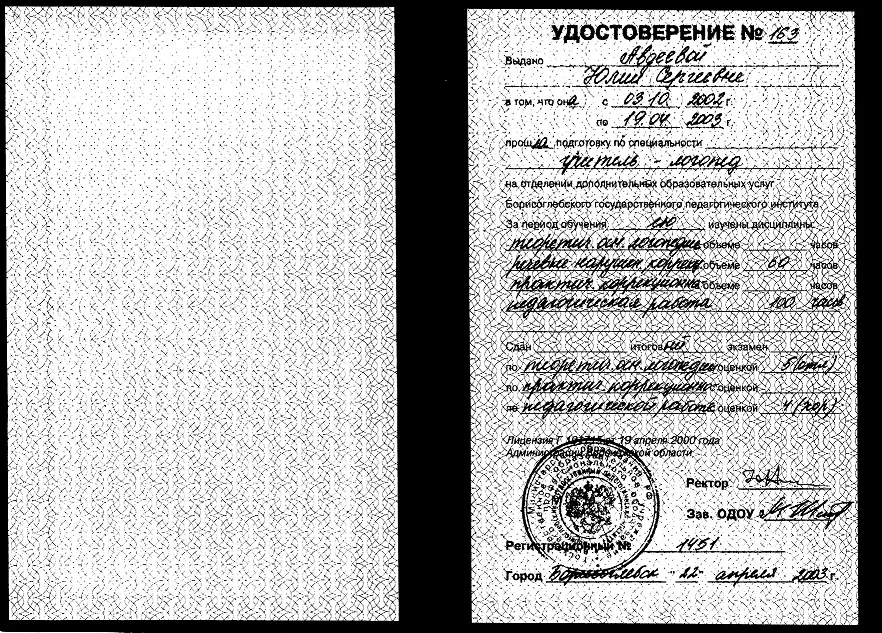 УДОСТОВЕРЕНИЕ № 153
Выдано Авдеевой
Юлии Сергеевне
в том, что она с 03.10. 2002 г.
по 19.04. 2003 г.
прошла подготовку по специальности
учитель - логопед
на отделении дополнительных образовательных услуг
Борисоглебского государственного педагогического института.
За период обучения ею изучены дисциплины:
теоретич. осн. логопедии объеме часов
речевые нарушен. коррекц. объеме 60 часов
практич. коррекционно объеме часов
педагогическая работа 100 часов
Сдан итоговый экзамен
по теоретич. осн. логопедии оценкой 5 (отл)
по практич. коррекционно- оценкой
по педагогической работе оценкой 4 (хор)
Лицензия Г от 19 апреля 2000 года
Администрации Воронежской области
Ректор
Зав. ОДОУ
Регистрационный № 1451
Город Борисоглебск "22" апреля 2003 г.